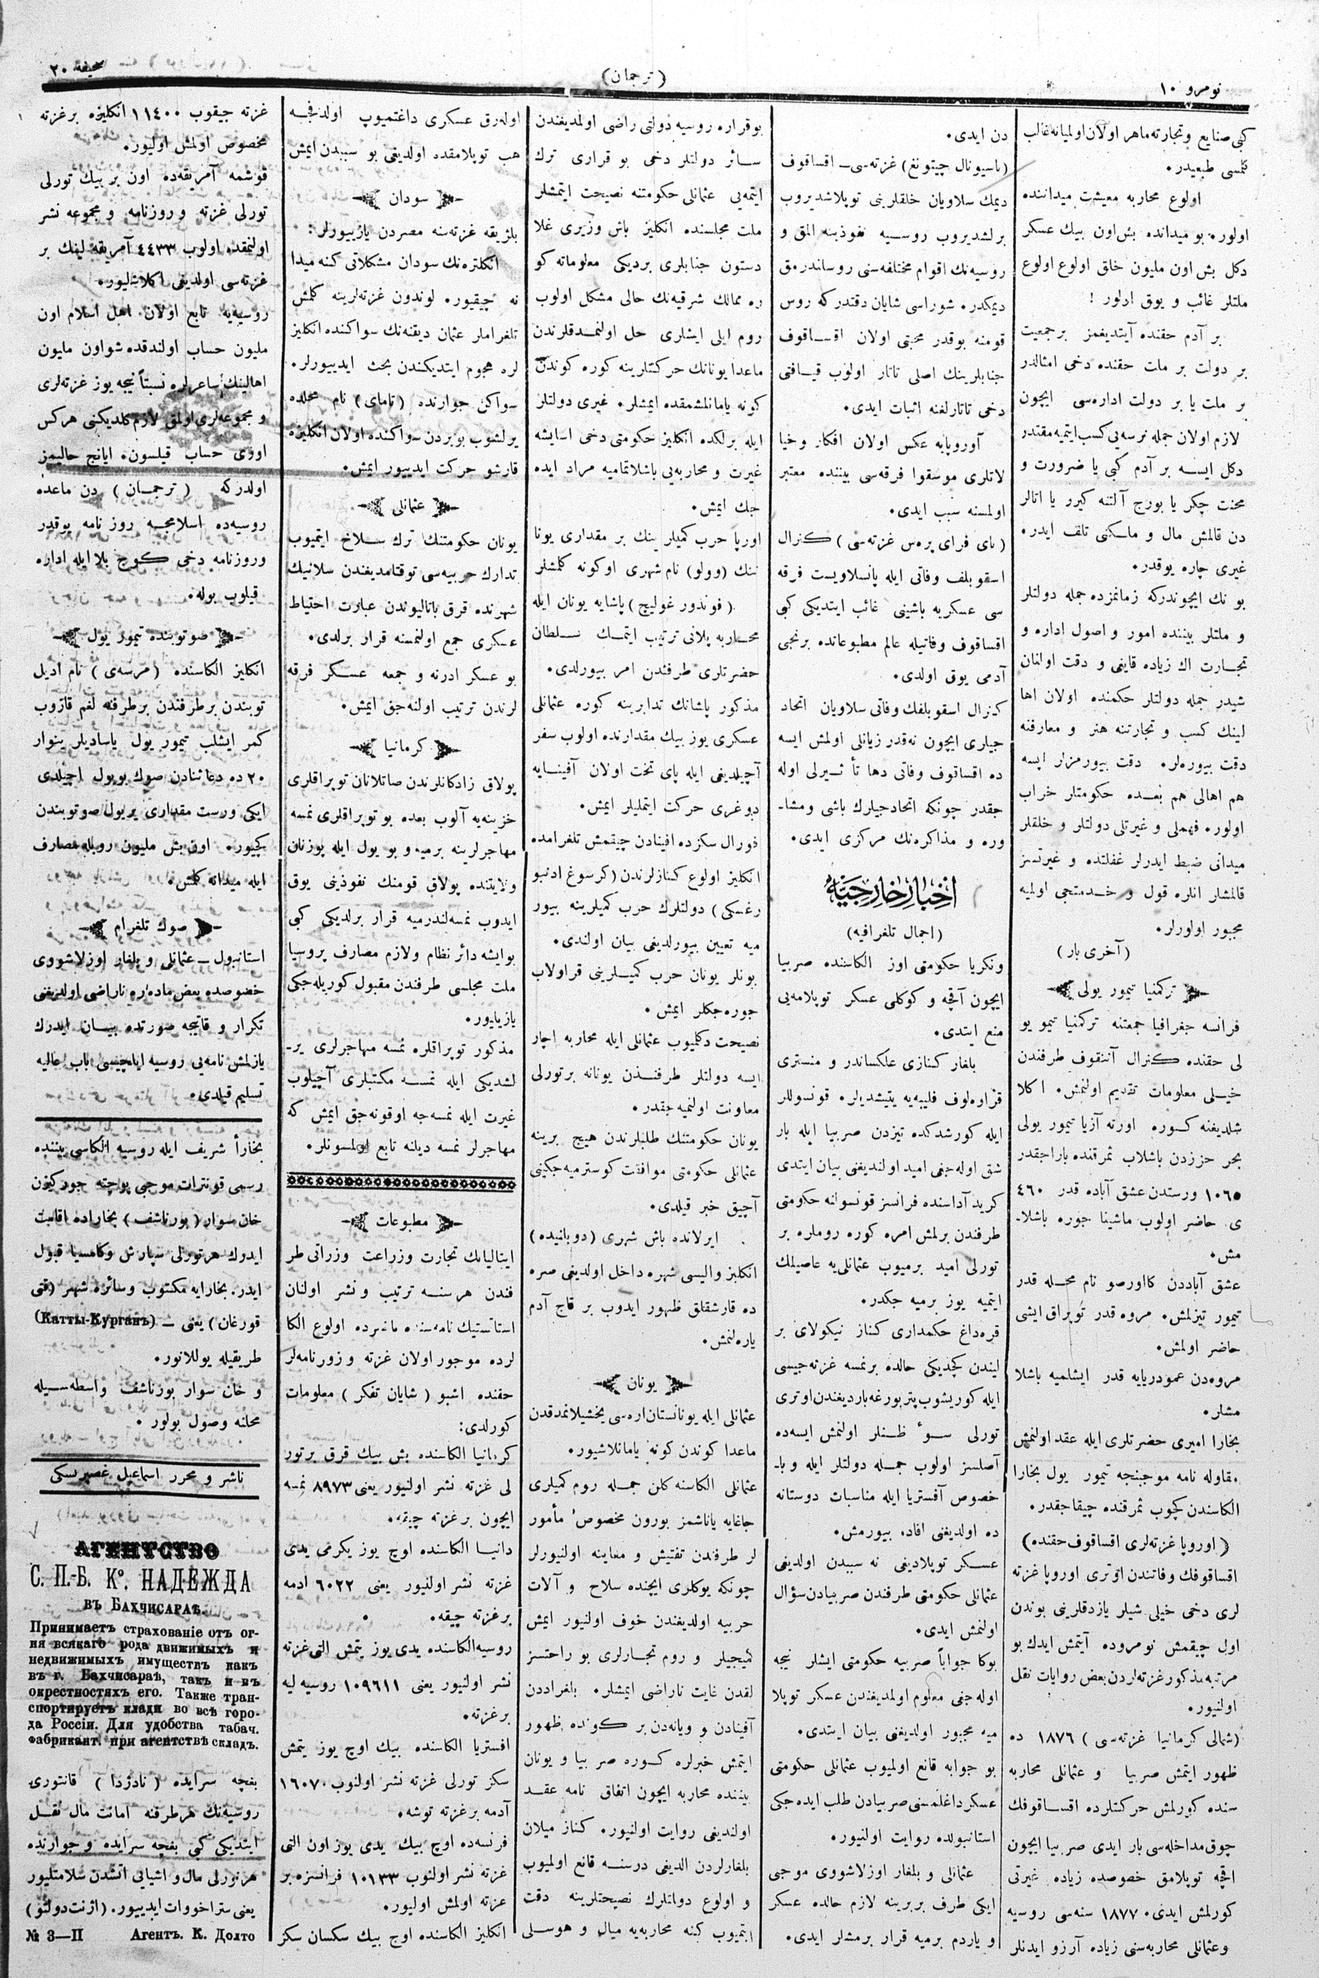 نومرو ۱۰
(ترجمان)
صحیفه ۲۰
كبی صنایع و تجارته ماهر اولان اولمیانه غالب
كلمسی طبعیدر.
اولوع محاربه معیشت میداننده
اولور. بو میدانده بش اون بیك عسكر
دكل بش اون ملیون خلق اولوع اولوع
ملتلر غائب و یوق ادلور !
بر آدم حقنده آیتدیغمز بر جمعیت
بر دولت بر ملت حقنده دخی امثالدر
بر ملت یا بر دولت اداره‌سی ایچون
لازم اولان جمله نرسه‌یی كسب ایتمیه مقتدر
دكل ایسه بر آدم كبی یا ضرورت و
محنت چكر یا بورج آلتنه كیرر یا اتالر
دن قالمش مال و ملكنی تلف ایدر.
غیری چاره یوقدر.
بو نك ایچوندركه زمانمزده جمله دولتلر
و ملتلر بیننده امور و اصول اداره و
تجارت اك زیاده قایغی و دقت اولنان
شیدر جمله دولتلر حكمنده اولان اها
لینك كسب و تجارتنه هنر و معارفنه
دقت بیوره‌لر. دقت بیورمزلر ایسه
هم اهالی هم بعده حكومتلر خراب
اولور. فهملی و غیرتلی دولتلر و خلقلر
میدانی ضبط ایدرلر غفلتده و غیرتسز
قالمشلر انلره قول و خدمتجی اولمیه
مجبور اولورلر.
(آخری بار)
تركمنیا تیمور یولی
فرانسه جغرافیا جمعتنه تركمنیا تیمو یو
لی حقنده كنرال آننقوف طرفندن
خیلی معلومات تقدیم اولنمش. اكلا
شلدیغنه كوره اورته آزیا تیمور یولی
بحر حززدن باشلاب ثمرقنده باراجقدر
۱۰٦٥ ورستدن عشق آباده قدر ٤٦۰
ی حاضر اولوب ماشینا جوره باشلا-
مش.
عشق آباددن كااورصو نام محله قدر
تیمور تیزلمش. مروه قدر توپراق ایشی
حاضر اولمش.
مروه‌دن عمودریایه قدر ایشلمیه باشلا
مشلر.
بخارا امیری حضرتلری ایله عقد اولنمش
مقاوله نامه موجبنجه تیمور یول بخارا
الكاسندن كچوب ثمرقنده چیقاجقدر.
(اوروپا غزته‌لری اقساقوف حقنده)
اقساقوفك وفاتندن اوتری اوروپا غزته
لری دخی خیلی شیلر یازدقلرینی بوندن
اول چیقمش نومروده آیتمش ایدك بو
مرتبه مذكور غزته‌لردن بعض روایات نقل
اولنیور.
(شمالی كرمانیا غزته‌سی) ۱۸۷٦ ده
ظهور ایتمش صربیا و عثمانلی محاربه
سنده كورلمش حركتلرده اقساقوفك
چوق مداخله‌سی بار ایدی صربیا ایچون
اقچه توپلامق خصوصده زیاده غیرتی
كورلمش ایدی. ۱۸۷۷ سنه‌سی روسیه
و عثمانلی محاربه‌سنی زیاده آرزو ایدنلر
دن ایدی.
(ناسیونال چیتونغ) غزته‌سی – اقساقوف
دیمك سلاویان خلقلرینی توپلاشدیروب
برلشدیروب روسیه نفوذینه المق و
روسیه‌نك اقوام مختلفه‌سی روساندرمق
دیمكدر. شوراسی شایان دقتدر كه روس
قومنه بوقدر محبتی اولان اقساقوف
جنابلرینك اصلی تاتار اولوب قیافتی
دخی تاتارلغنه اثبات ایدی.
آوروپایه عكس اولان افكار و خیا
لاتلری موسقوا فرقه‌سی بیننده معتبر
اولمسنه سبب ایدی.
(نای فرای پره‌س غزته‌سی) كنرال
اسقوبلف وفاتی ایله پانسلاویست فرقه
سی عسكریه باشینی غائب ایتدیكی كبی
اقساقوف وفاتیله عالم مطبوعاتده برنجی
آدمی یوق اولدی.
كنرال اسقوبلفك وفاتی سلاویان اتحاد
جیلری ایچون نه‌قدر زیانلی اولمش ایسه
ده اقساقوف وفاتی دها تأثیرلی اوله
جقدر چونكه اتحادجیلرك باشی و مشا-
وره و مذاكره‌نك مركزی ایدی.
اخبار خارجیه
(اجمال تلغرافیه)
ونكریا حكومتی اوز الكاسنده صربیا
ایچون آقچه و كوكلی عسكر توپلامه‌یی
منع ایتدی.
بلغار كنازی علكساندر و منستری
قراوه‌لوف فلیبه‌یه یتیشدیلر. قونسوللر
ایله كورشدكده تیزدن صربیا ایله بار
شق اوله‌جغی امید اولندیغنی بیان ایتدی
كرید آداسنده فرانسز قونسوانه حكومتی
طرفندن برلمش امره كوره روملره بر
تورلی امید برمیوب عثمانلی‌یه عاصیلك
ایتمیه یوز برمیه جكدر.
قره‌داغ حكمداری كناز نیكولای بر
لیندن كچدیكی حالده بر نمسه غزته‌جیسی
ایله كوریشوب پتربورغه باردیغندن اوتری
تورلی سوٴ ظنلر اولنمش ایسه‌ده
آصلسز اولوب جمله دولتلر ایله و با-
خصوص آفستریا ایله مناسبات دوستانه
ده اولدیغنی افاده بیورمش.
عسكر توپلادیغی نه سببدن اولدیغی
عثمانلی حكومتی طرفندن صربیادن سؤال
اولنمش ایدی.
بوكا جواباً صربیه حكومتی ایشلر نیجه
اوله‌جغی معلوم اولمدیغندن عسكر توپلا
میه مجبور اولدیغنی بیان ایتدی.
بو جوابه قانع اولمیوب عثمانلی حكومتی
عسكر داغلمسنی صربیادن طلب ایده‌جكی
استانبولده روایت اولنیور.
عثمانلی و بلغار اوزلاشووی موجبی
ایكی طرف بربرینه لازم حالده عسكر
و یاردم برمیه قرار برمشلر ایدی.
بو قراره روسیه دولتی راضی اولمدیغندن
سائر دولتلر دخی بو قراری ترك
ایتمه‌یی عثمانلی حكومتنه نصیحت ایتمشلر
ملت مجلسنده انكلیز باش وزیری غلا
دستون جنابلری بردیكی معلوماته كو
ره ممالك شرقیه‌نك حالی مشكل اولوب
روم ایلی ایشلری حل اولنمدقلرندن
ماعدا یونانك حركتلرینه كوره كوندن
كونه یامانلشمقده ایمشلر. غیری دولتلر
ایله برلكده انكلیز حكومتی دخی اسایشه
غیرت و محاربه‌یی باشلاتمامیه مراد ایده
جك ایمش.
اورپا حرب كمیلرینك بر مقداری یونا
ننك (وولو) نام شهری اوكونه كلمشلر
(فوندور غولیچ) پاشایه یونان ایله
محاربه پلانی ترتیب ایتمك سلطان
حضرتلری طرفندن امر بیورلدی.
مذكور پاشانك تدابرینه كوره عثمانلی
عسكری یوز بیك مقدارنده اولوب سفر
آچیلدیغی ایله پای تخت اولان آفینایه
دوغری حركت ایتملیلر ایمش.
فورال سكزده افینادن چیقمش تلغرامده
انكلیز اولوع كنازلرندن (كرسوغ ادنبو
رغسكی) دولتلرك حرب كمیلرینه بیور
میه تعیین بیورلدیغی بیان اولندی.
بونلر یونان حرب كمیلرینی قراولاب
جوره جكلر ایمش.
نصیحت دكلیوب عثمانلی ایله محاربه اچار
ایسه دولتلر طرفندن یونانه بر تورلی
معاونت اولنمیه جقدر.
یونان حكومتنك طلبلرندن هیچ برینه
عثمانلی حكومتی موافقت كوسترمیه جكینی
آچیق خبر قیلدی.
ایرلانده باش شهری (دوبلنیده)
انكلیز والیسی شهره داخل اولدیغی صره
ده قارشقلق ظهور ایدوب بر قاج آدم
یاره‌لنمش.
یونان
عثمانلی ایله یونانستان اره‌سی یخشیلانمدقدن
ماعدا كوندن كونه یامانلاشیور.
عثمانلی الكاسنه كلن جمله روم كمیلری
جاغایه یاناشمز بورون مخصوص مأمور
لر طرفندن تفتیش و معاینه اولنیورلر
چونكه یوكلری ایچنده سلاح و آلات
حربیه اولدیغندن خوف اولنیور ایمش
كمیجیلر و روم تجارلری بو راحتسز
لقدن غایت ناراضی ایمشلر. بلغراددن
آفینادن و ویانه‌دن بر كونده ظهور
ایتمش خبرلره كوره صربیا و یونان
بیننده محاربه ایچون اتفاق نامه عقد
اولندیغی روایت اولنیور. كناز میلان
بلغارلردن الدیغی درسنه قانع اولمیوب
و اولوع دولتلرك نصیحتلرینه دقت
ایتمیوب كنه محاربه‌یه میل و هوسلی
اولدرق عسكری داغتمیوپ اولدیغه
هب توپلامقده اولدیغی بو سببدن ایمش
سودان
بلزیقه غزته‌سنه مصردن یازبیورلر:
انكلتره‌نك سودان مشكلاتی كنه میدا
نه چیقیور. لوندون غزته‌لرینه كلمش
تلغراملر عثمان دیقنه‌نك سواكنده انكلیز
لره هجوم ایتدیكندن بحث ایدییورلر.
سواكن جوارنده (تامای) نام محلده
یرلشوب بوبردن سواكنده اولان انكلیزه
قارشو حركت ایدییور ایمش.
عثمانلی
یونان حكومتنك ترك سلاح ایتمیوب
تدارك حربیه‌سی توقتامدیغندن سلانیك
شهرنده قرق باتالیوندن عبارت احتیاط
عسكری جمع اولنمسنه قرار برلدی.
بو عسكر ادرنه و جمعه عسكر فرقه
لرندن ترتیب اولنه‌جق ایمش.
كرمانیا
پولاق زادكانلرندن صاتلانان توپراقلری
خزینه‌یه آلوب بعده بو توپراقلری نمسه
مهاجرلرینه برمیه و بو یول ایله پوزنان
ولایتنده پولاق قومنك نفوذینی یوق
ایدوب نمسه‌لندرمیه قرار برلدیكی كبی
بو ایشه دائر نظام و لازم مصارف پروسیا
ملت مجلسی طرفندن مقبول كوریله‌جكی
یازیلیور.
مذكور توپراقلره نمسه مهاجرلری یر-
لشدیكی ایله نمسه مكتبلری آچیلوب
غیرت ایله نمسه‌جه اوقونه‌جق ایمش كه
مهاجرلر نمسه دیلنه تابع اولمسونلر.
مطبوعات
ایتالیانك تجارت وزراعت وزراتی طر
فندن هر سنه ترتیب و نشر اولنان
استاتستیك نامه‌سنده اولوع الكا
لرده موجود اولان غزته و زورنامه‌لر
حقنده اشبو (شایان تفكر) معلومات
كورلدی:
كرمانیا الكاسنده بش بیك قرق برتور
لی غزته نشر اولنیور یعنی ۸۹۷۳ نمسه
ایچون بر غزته چیقه.
دانیا الكاسنده اوچ یوز یكرمی یدی
غزته نشر اولنیور یعنی ٦۰۲۲ ادمه
بر غزته چیقه.
روسیه الكاسنده یدی یوز یتمش التی غزته
نشر اولنیور یعنی ۱۰۹٦۱۱ روسیه لیه
بر غزته.
افستریا الكاسنده بیك اوچ یوز یتمش
سكز تورلی غزته نشر اولنوب ۱٦۰۷۰
آدمه بر غزته توشه.
فرنسه‌ده اوچ بیك یدی یوز اون التی
غزته نشر اولنوب ۱۰۱۳۳ فرانسزه بر
غزته اولمش اولیور.
انكلیز الكاسنده اوچ بیك سكسان سكز
غزته چیقوب ۱۱٤۰۰ انكلیزه بر غزته
مخصوص اولمش اولیور.
قوشمه آمریقه‌ده اون بر بیك تورلی
تورلی غزته و روزنامه و مجموعه نشر
اولنمقده اولوب ٤٤۳۳ آمریقه لینك بر
غزته‌سی اولدیغی اكلاشیلیور.
روسیه‌یه تابع اولان اهل اسلام اون
ملیون حساب اولندقده شو اون ملیون
اهالینك ساعرلره نسبتاً نیجه یوز غزته‌لری
و مجموعه‌لری اولمق لازم كلدیكنی هر كس
اوزی حساب قیلسون. ایانچ حالیمز
اولدركه (ترجمان) دن ماعده
روسیه‌ده اسلامجه روز نامه یوقدر
وروزنامه دخی كوچ بلا ایله اداره
قیلوب بوله.
صوتوبنده تیمور یول
انكلیز الكاسنده (مرسه‌ی) نام ادیل
توبندن بر طرفندن بر طرفنه لغم قازوب
كمر ایشلب تیمور یول یاسادیلر ینوار
۲۰ ده دعا ثنادن صوك بو یول اچیلدی
ایكی ورست مقداری بر یول صوتوبندن
كچیور. اون بش ملیون روبله مصارف
ایله میدانه كلمش.
صوك تلغرام
استانبول – عثمانلی و بلغار اوزلاشووی
خصوصده بعض ماده‌لره ناراضی اولدیغنی
تكرار و قانیجه صورتده بیان ایدرك
یازلمش نامه‌یی روسیه ایلچیسی باب عالیه
تسلیم قیلدی.
بخاراٴ شریف ایله روسیه الكاسی بیننده
رسمی قونترات موجبی پوچته جوركون
خان سوار (بورناشف) بخاراده اقامت
ایدرك هرتورلی سپارش وكامسیا قبول
ایدر. بخارایه مكتوب وسائره شهر (قتی
قورغان) یعنی – (Катты-Курганъ)
طریقیله یوللانور.
و خان سوار بورناشف واسطه‌سیله
محلنه وصول بولور.
ناشر و محرر اسماعیل غصپرینسكی
АГЕНТСТВО
С. П.-Б. Ко. НАДЕЖДА
въ Бахчисараѣ.
Принимаетъ страхованіе отъ ог-
ня всякаго рода движимыхъ и
недвижимыхъ имуществъ какъ
въ г. Бахчисараѣ, такъ и въ
окрестностяхъ его. Также тран-
спортируетъ клади во всѣ горо-
да Россіи. Для удобства табач.
фабрикант. при агентствѣ складъ.
بغچه سرایده (نادژدا) قانتوری
روسیه‌نك هر طرفنه امانت مال نقل
ایتدیكی كبی بغچه سرایده و جوارنده
هر تورلی مال و اشیائی اتشدن سلامتلیور
یعنی ستراخووات ایدییور. (اژنت دولتو)
№ 3—II Агентъ. К. Долто